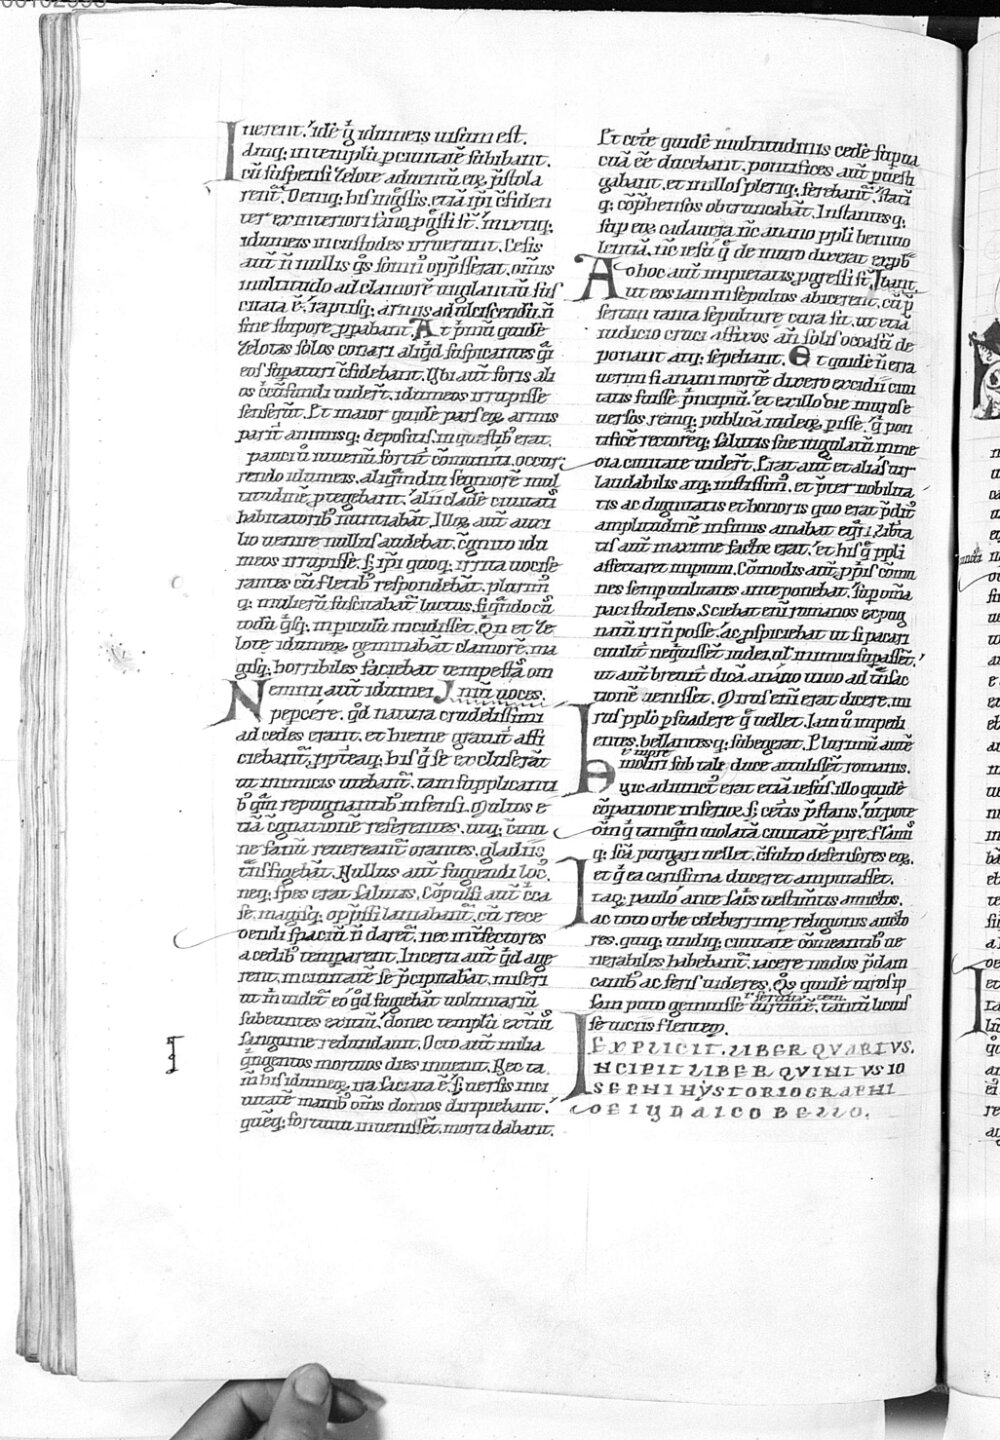 uerent. idē q̄ idumeis uisum est.
Amq; in templū p ciuitatē subibant.
cū suspensi zelotę aduentū eoꝝ p̄stola
rent̄. Deniq; his ingssis. etiā ip̄i c̄fiden
ter ex interiori fano pg̃ssi st̄. mixtiq;
idumeis in custodes irruerunt. Cesis
aut̄ n̄ nullis q̄s somn͛ opp̄sserat. om̄is
multitudo ad clamorē uigilantiū sus
citata ē. raptisq; armis ad ulciscendū. n̄
sine stupore ꝓpabant. At p̄mū quidē
zelotas solos conari aliq̄d suspicantes q̄i
eos supaturi c̄fidebant. Ubi aut̄ foris ali
os c̄cūfundi uider̄t. idumeos irrupisse
senserūt. Et maior quidē pars eoꝝ armis
parit̄ animisq; depositis in questib; erat.
pauci u͛ iuuenū fortit̄ cōmuniti. occur
rendo idumeis. aliq̄ndiu segniorē mul
titudinē ptegebant. alii cladē ciuitatis
habitatorib; nuntiabāt. Illoꝝ aut̄ auxi
lio uenire nullus audebat. c̄gnito idu
meos irrupisse. S; ip̄i quoq; irrita uocife
rantes cū fletib; respondebāt. plurim͛
q; mulierū suscitabat̄ luctus. si q̄ndo cū
todū q̄sq; in piculū incidisset. Qn̄ et ze
lotę idumeoꝝ geminabāt clamorē. ma
gisq; horribiles faciebat tempestas om
nium uoces.
Nemini aut̄ idumei
pepcere. q̄d natura crudelissimi
ad cedes erant. et hieme grauit̄ affi
ciebant̄. ppt̄eaq; his q̄ se excluserāt
ut inimicis utebant̄. tam supplicanti
b; q̄m repugnantib; infensi. Multos e
tiā c̄gnationē referentes. utq; c̄mu
ne fanū reuereant̄ orantes. gladiis
t̄nsfigebāt. Nullus aut̄ fugiendi loc͛.
neq; spes erat salutis. Cōpulsi aut̄ c̄ca
se. magisq; opp̄ssi laniabant̄. cū rece
dendi spaciū n̄ daret̄. nec int̄fectores
a cedib; temparent. Incerti aut̄ q̄d age
rent. in ciuitatē se p̄cipitabāt. miseri
ut m̄ uidet̄ eo q̄d fugiebāt uoluntariū
subeuntes exitiū. donec templū extiū
sanguine redundauit. Octo aut̄ milia
q̄ngentos mortuos dies inuenit. Nec ta
m̄ his idumeoꝝ ira saciata ē. S; uersis in ci
uitatē manib; om̄s domos diripiebant.
quēq; fortuitu inuenissēt. morti dabant.
Et cet̄e quidē multitudinis cedē supua
cuā eē ducebant. pontifices aut̄ puesti
gabant. et in illos pleriq; ferebant̄. statī
q; cophensos obtruncabāt. Instantesq;
sup eoꝝ cadauera. nc̄ anano ppli beniuo
lentiā. nc̄ iesu q̄ de muro dixerat exp͛b
rabant.
Ad hoc aut̄ impietatis pgressi st̄.
ut eos iam insepultos abicerent. cū p̄
sertim tanta sepulture cura sit. ut etiā
iudicio cruci affixos an̄ solis occasū de
ponant atq; sepeliant. Et quidē n̄ erra
uerim si anani mortē dixero excidii ciui
tatis fuisse p̄ncipiū. et ex illo die muros e
uersos. remq; publicā iudeoꝝ pisse. q̄ pon
tificē rectorēq; salutis suę iugulatū in me
dia ciuitate uider̄t. Erat aut̄ et aliàs uir
laudabilis atq; iustissim͛. et p̄ter nobilita
tis ac dignitatis et honoris quo erat p̄dit͛
amplitudinē infimis amabat eq̄ri. Libta
tis aut̄ maxime fautor erat. et his q̄ ppli
affectaret impium. Cōmodis aut̄ pp̄is cōmu
nes semp utilitates anteponebat. sup om̄a
paci studens. Sciebat eni romanos expug
nari uiri n̄ posse. ac pspiciebat ut si pacari
ciuilit̄ neq̄uissēt iudei. ul̄ inimici supassēt.
ut aut̄ breuit̄ dicā. anano uiuo ad t̄nsac
tionē uenisset. Mirus eni erat dicere. mi
rus pplo psuadere q̄ uellet. Iam u͛ impedi
entes. bellantesq; subegerat. Plurimū aut̄
moliri sub tale duce attulissēt romanis.
Huic adiunct͛ erat etiā iesus. illo quidē
c̄patione inferior. s; cet̄is p̄stans. ut pote
om̄ q̄ tamq̄m uiolatā ciuitatē pire. flāmis
q; sc̄a purgari uellet. c̄sulto defensores eoꝝ.
et q̄ ea carissima duceret amputasset.
Itaq; paulo ante sac̄s uestim̄tis amictos.
ac toto orbe celeberrime religionis aucto
res. quiq; undiq; ciuitatē cōmeantib; ue
nerabiles habebant̄. iacere nudos p̄dam
canib; ac feris uideres. Q͛s quidē uiros ip
sam puto gemuisse uirtutē. tantū licuis
se uiciis flentem.
EXPLICIT. LIBER QVARTVS.
INCIPIT LIBER QVINTVS IO
SEPHI HYSTORIOGRAPHI
DE IVDAICO BELLO.